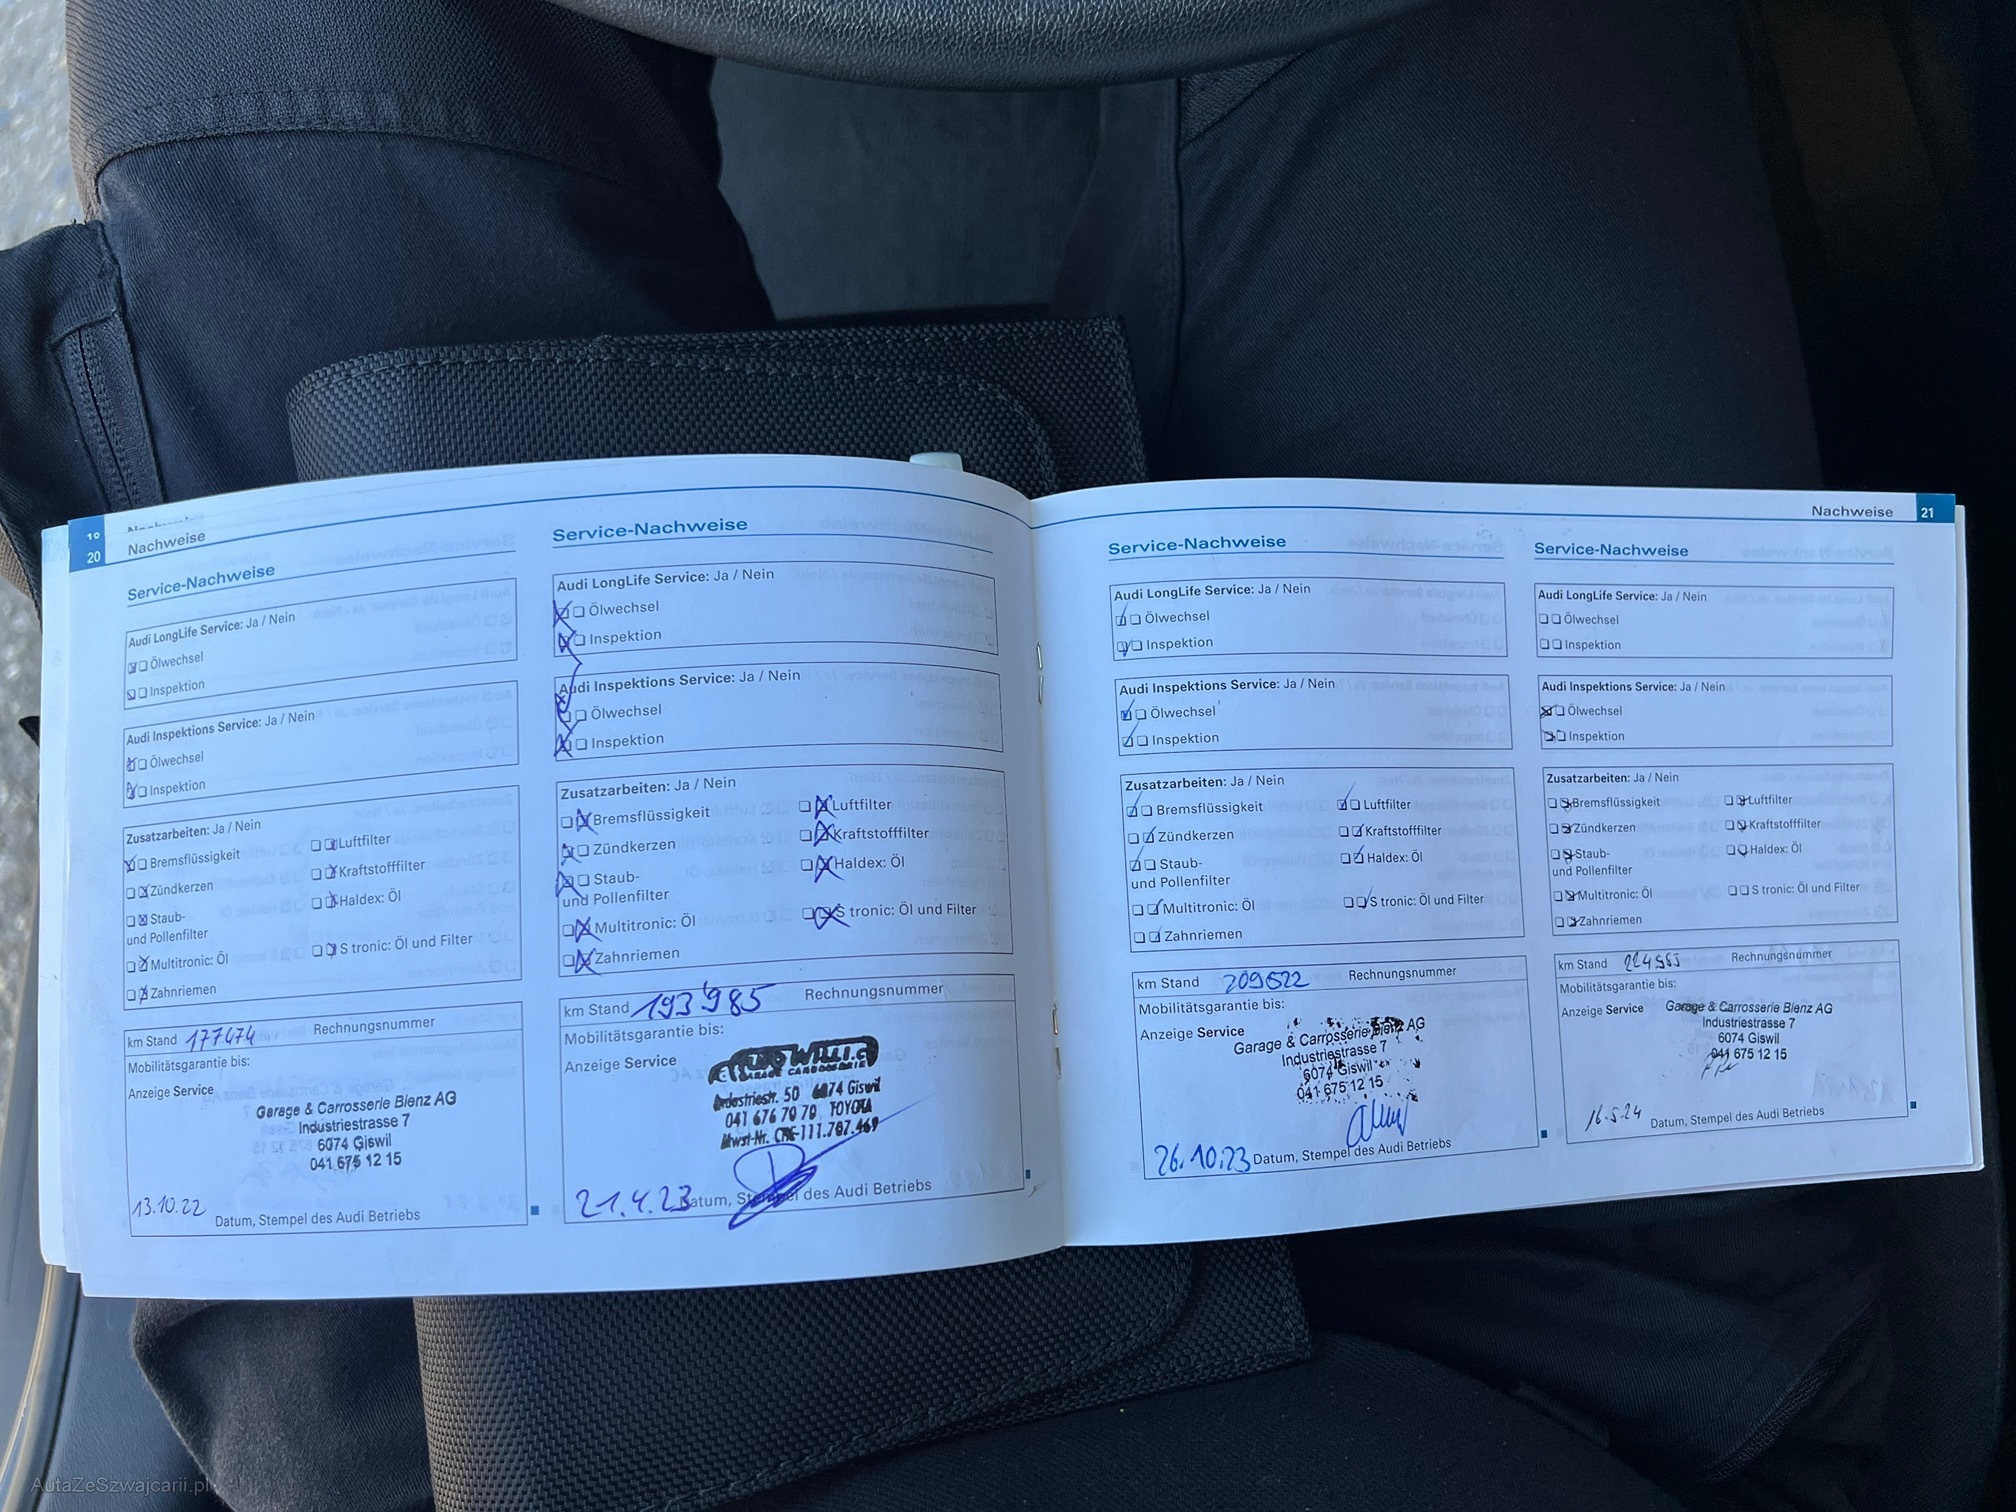 20
Nachweise
Service-Nachweise
Audi LongLife Service: Ja / Nein
Ölwechsel
Inspektion
Audi Inspektions Service: Ja / Nein
Ölwechsel
Inspektion
Zusatzarbeiten: Ja / Nein
Bremsflüssigkeit
Luftfilter
Zündkerzen
Kraftstofffilter
Staub-
und Pollenfilter
Haldex: Öl
Multitronic: Öl
S tronic: Öl und Filter
Zahnriemen
km Stand 177474 Rechnungsnummer
Mobilitätsgarantie bis:
Anzeige Service
Garage & Carrosserie Bienz AG
Industriestrasse 7
6074 Giswil
041 675 12 15
13.10.22
Datum, Stempel des Audi Betriebs
Service-Nachweise
Audi LongLife Service: Ja / Nein
Ölwechsel
Inspektion
Audi Inspektions Service: Ja / Nein
Ölwechsel
Inspektion
Zusatzarbeiten: Ja / Nein
Bremsflüssigkeit
Luftfilter
Zündkerzen
Kraftstofffilter
Staub-
und Pollenfilter
Haldex: Öl
Multitronic: Öl
S tronic: Öl und Filter
Zahnriemen
km Stand 193'985 Rechnungsnummer
Mobilitätsgarantie bis:
Anzeige Service
WILLI
GARAGE CARROSSERIE
Industriestr. 50 6074 Giswil
041 676 70 70 TOYOTA
Mwst-Nr. CHE-111.787.469
21.4.23
Datum, Stempel des Audi Betriebs
Nachweise 21
Service-Nachweise
Audi LongLife Service: Ja / Nein
Ölwechsel
Inspektion
Audi Inspektions Service: Ja / Nein
Ölwechsel
Inspektion
Zusatzarbeiten: Ja / Nein
Bremsflüssigkeit
Luftfilter
Zündkerzen
Kraftstofffilter
Staub-
und Pollenfilter
Haldex: Öl
Multitronic: Öl
S tronic: Öl und Filter
Zahnriemen
km Stand 209622 Rechnungsnummer
Mobilitätsgarantie bis:
Anzeige Service
Garage & Carrosserie Bienz AG
Industriestrasse 7
6074 Giswil
041 675 12 15
26.10.23
Datum, Stempel des Audi Betriebs
Service-Nachweise
Audi LongLife Service: Ja / Nein
Ölwechsel
Inspektion
Audi Inspektions Service: Ja / Nein
Ölwechsel
Inspektion
Zusatzarbeiten: Ja / Nein
Bremsflüssigkeit
Luftfilter
Zündkerzen
Kraftstofffilter
Staub-
und Pollenfilter
Haldex: Öl
Multitronic: Öl
S tronic: Öl und Filter
Zahnriemen
km Stand Rechnungsnummer
Mobilitätsgarantie bis:
Anzeige Service
Garage & Carrosserie Bienz AG
Industriestrasse 7
6074 Giswil
041 675 12 15
16.5.24
Datum, Stempel des Audi Betriebs
AutaZeSzwajcarii.pl